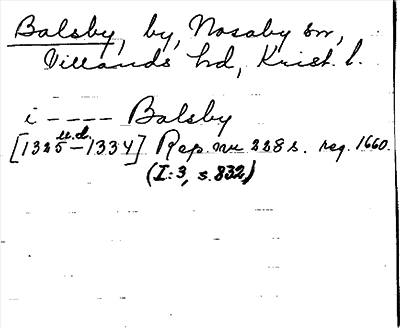 Balsby, by, Nosaby sn,
Villands hd, Krist. l.
i - - - - Balsby
u.d.
[1325-1334] Rep. nr 228 s. reg. 1660.
(I:3, s. 832)